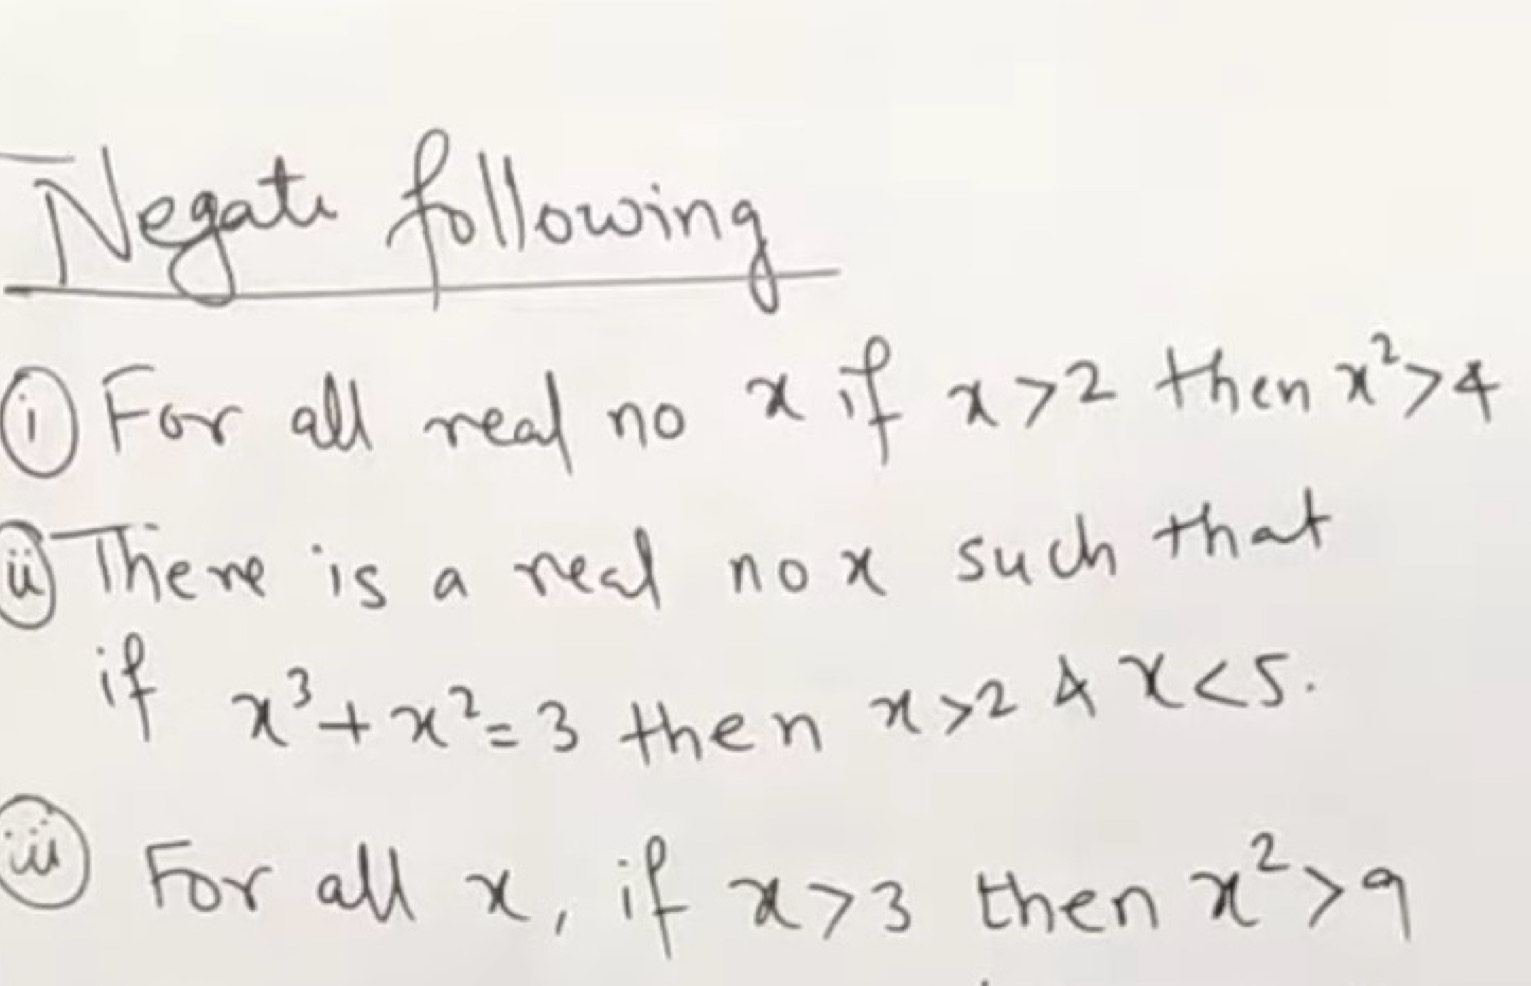 Negate following
(i) For all real no x if x>2 then x²>4
(ii) There is a real no x such that
if x³+x²=3 then x>2 & x<5.
(iii) For all x, if x>3 then x²>9